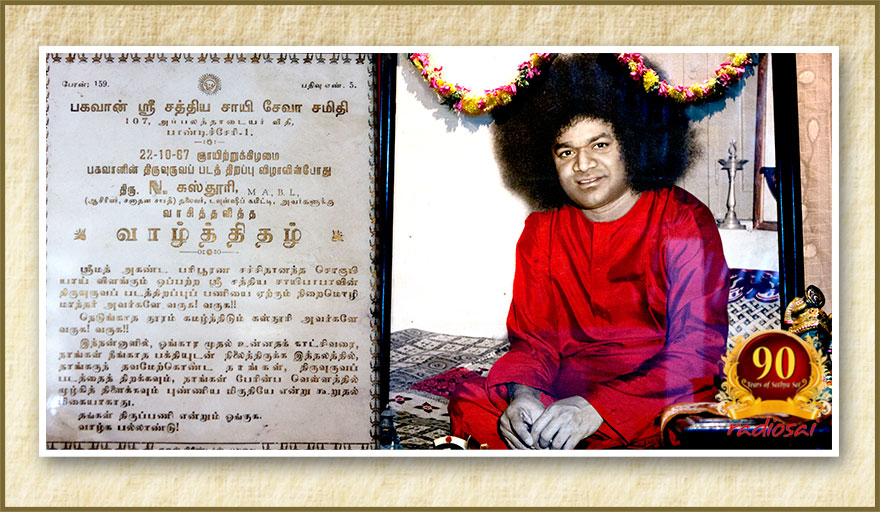 போன்: 159.
பதிவு எண். 5.
பகவான் ஸ்ரீ சத்திய சாயி சேவா சமிதி
107, அப்பலத்தாடையர் வீதி,
பாண்டிச்சேரி-1.
22-10-67 ஞாயிற்றுக்கிழமை
பகவானின் திருவுருவப் படத் திறப்பு விழாவின்போது
திரு. N. கஸ்தூரி, M.A.B.L,
(ஆசிரியர், சனாதன சாரதி) தலைவர், டவுன்ஷிப் கமிட்டி, அவர்களுக்கு
வாசித்தளித்த
வாழ்த்திதழ்
ஸ்ரீமத் அகண்ட பரிபூரண சச்சிதானந்த சொரூபி
யாய் விளங்கும் ஒப்பற்ற ஸ்ரீ சத்திய சாயிபாபாவின்
திருவுருவப் படத்திறப்புப் பணியை ஏற்கும் நிறைமொழி
மாந்தர் அவர்களே வருக! வருக!!
தெடுங்காத தூரம் கமழ்த்திடும் கஸ்தூரி அவர்களே
வருக! வருக!!
இந்தன்னாளில், ஓங்கார முதல் உன்னதக் காட்சிவரை,
தாங்கள் நீங்காத பக்தியுடன் நிலைத்திருக்க இத்தலத்தில்,
தாங்கருந் தவமேற்கொண்ட தாங்கள், திருவுருவப்
படத்தைத் திறக்கவும், தாங்கள் பேரின்ப வெள்ளத்தில்
மூழ்கித் திளைக்கவும் புண்ணிய மிகுதியே என்று கூறுதல்
மிகையாகாது.
தங்கள் திருப்பணி என்றும் ஓங்குக.
வாழ்க பல்லாண்டு!
90
Years of Sathya Sai
radiosai